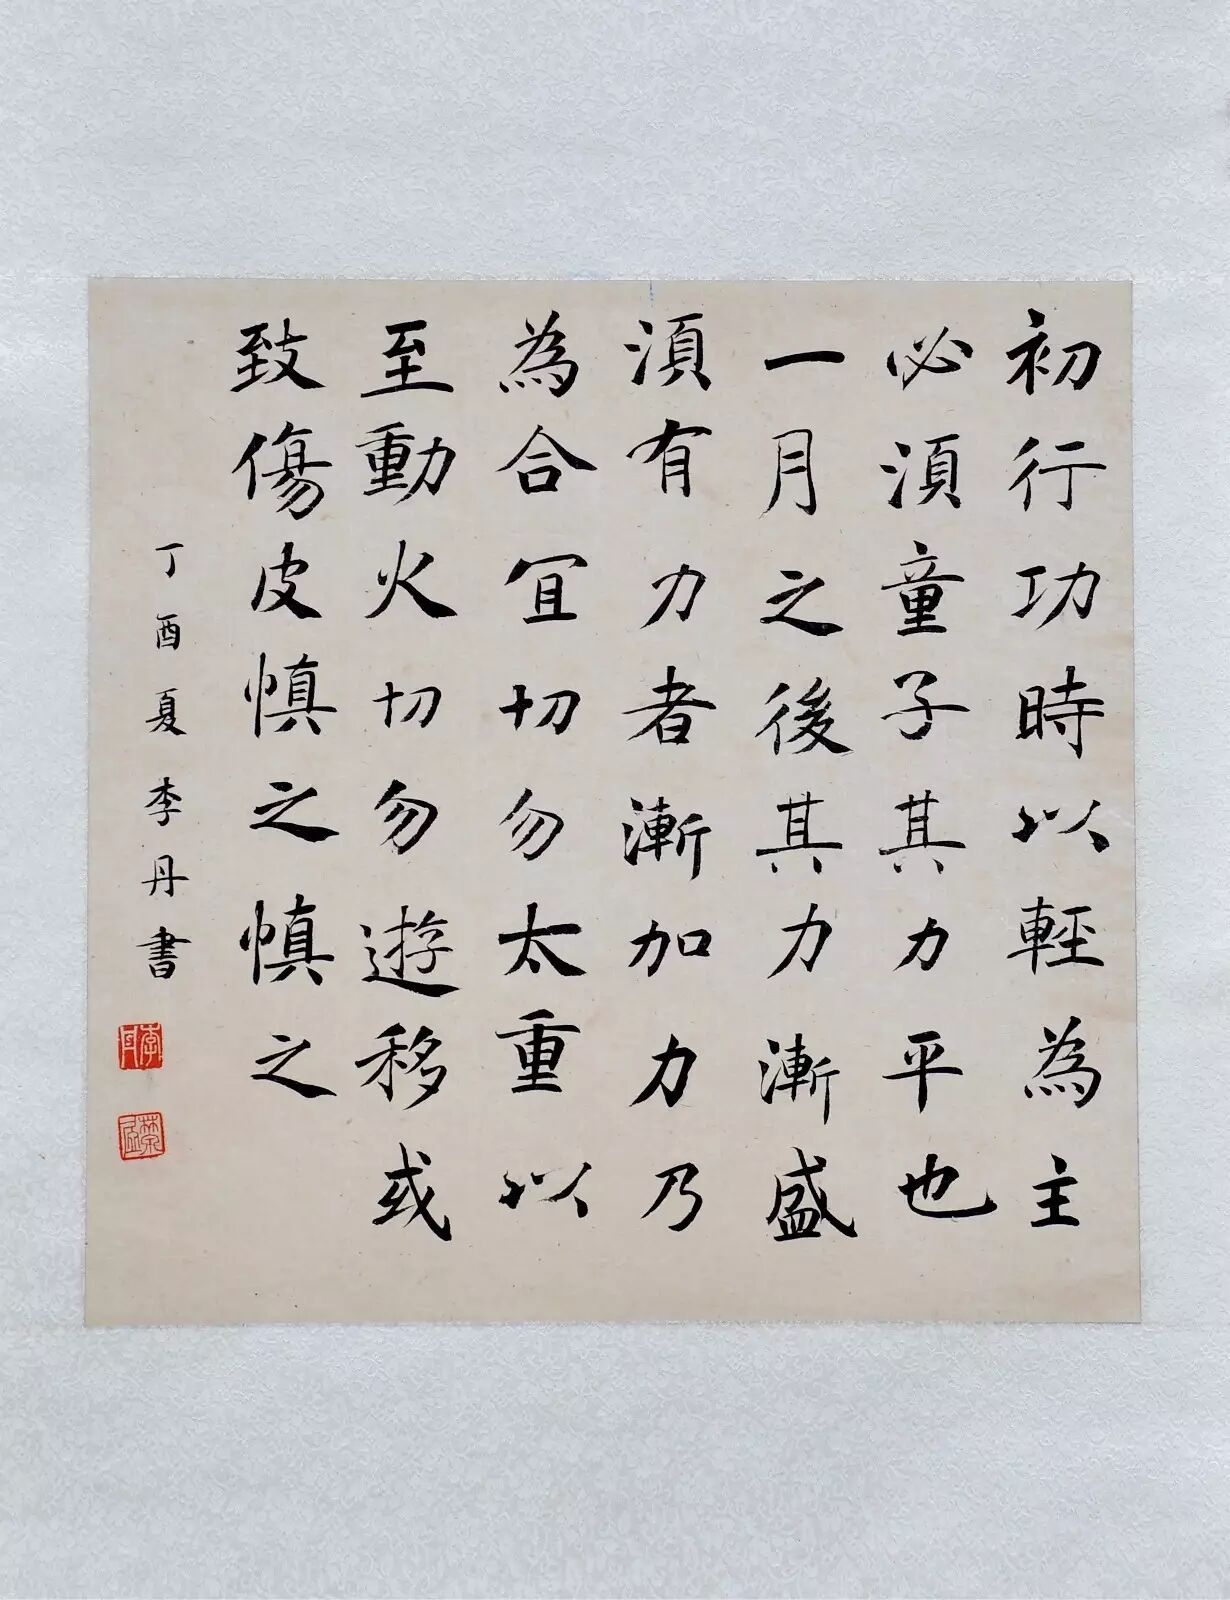 初行功時以輕為主
必須童子其力平也
一月之後其力漸盛
須有力者漸加力乃
為合宜切勿太重以
至動火切勿遊移或
致傷皮慎之慎之
丁酉夏李丹書
李丹